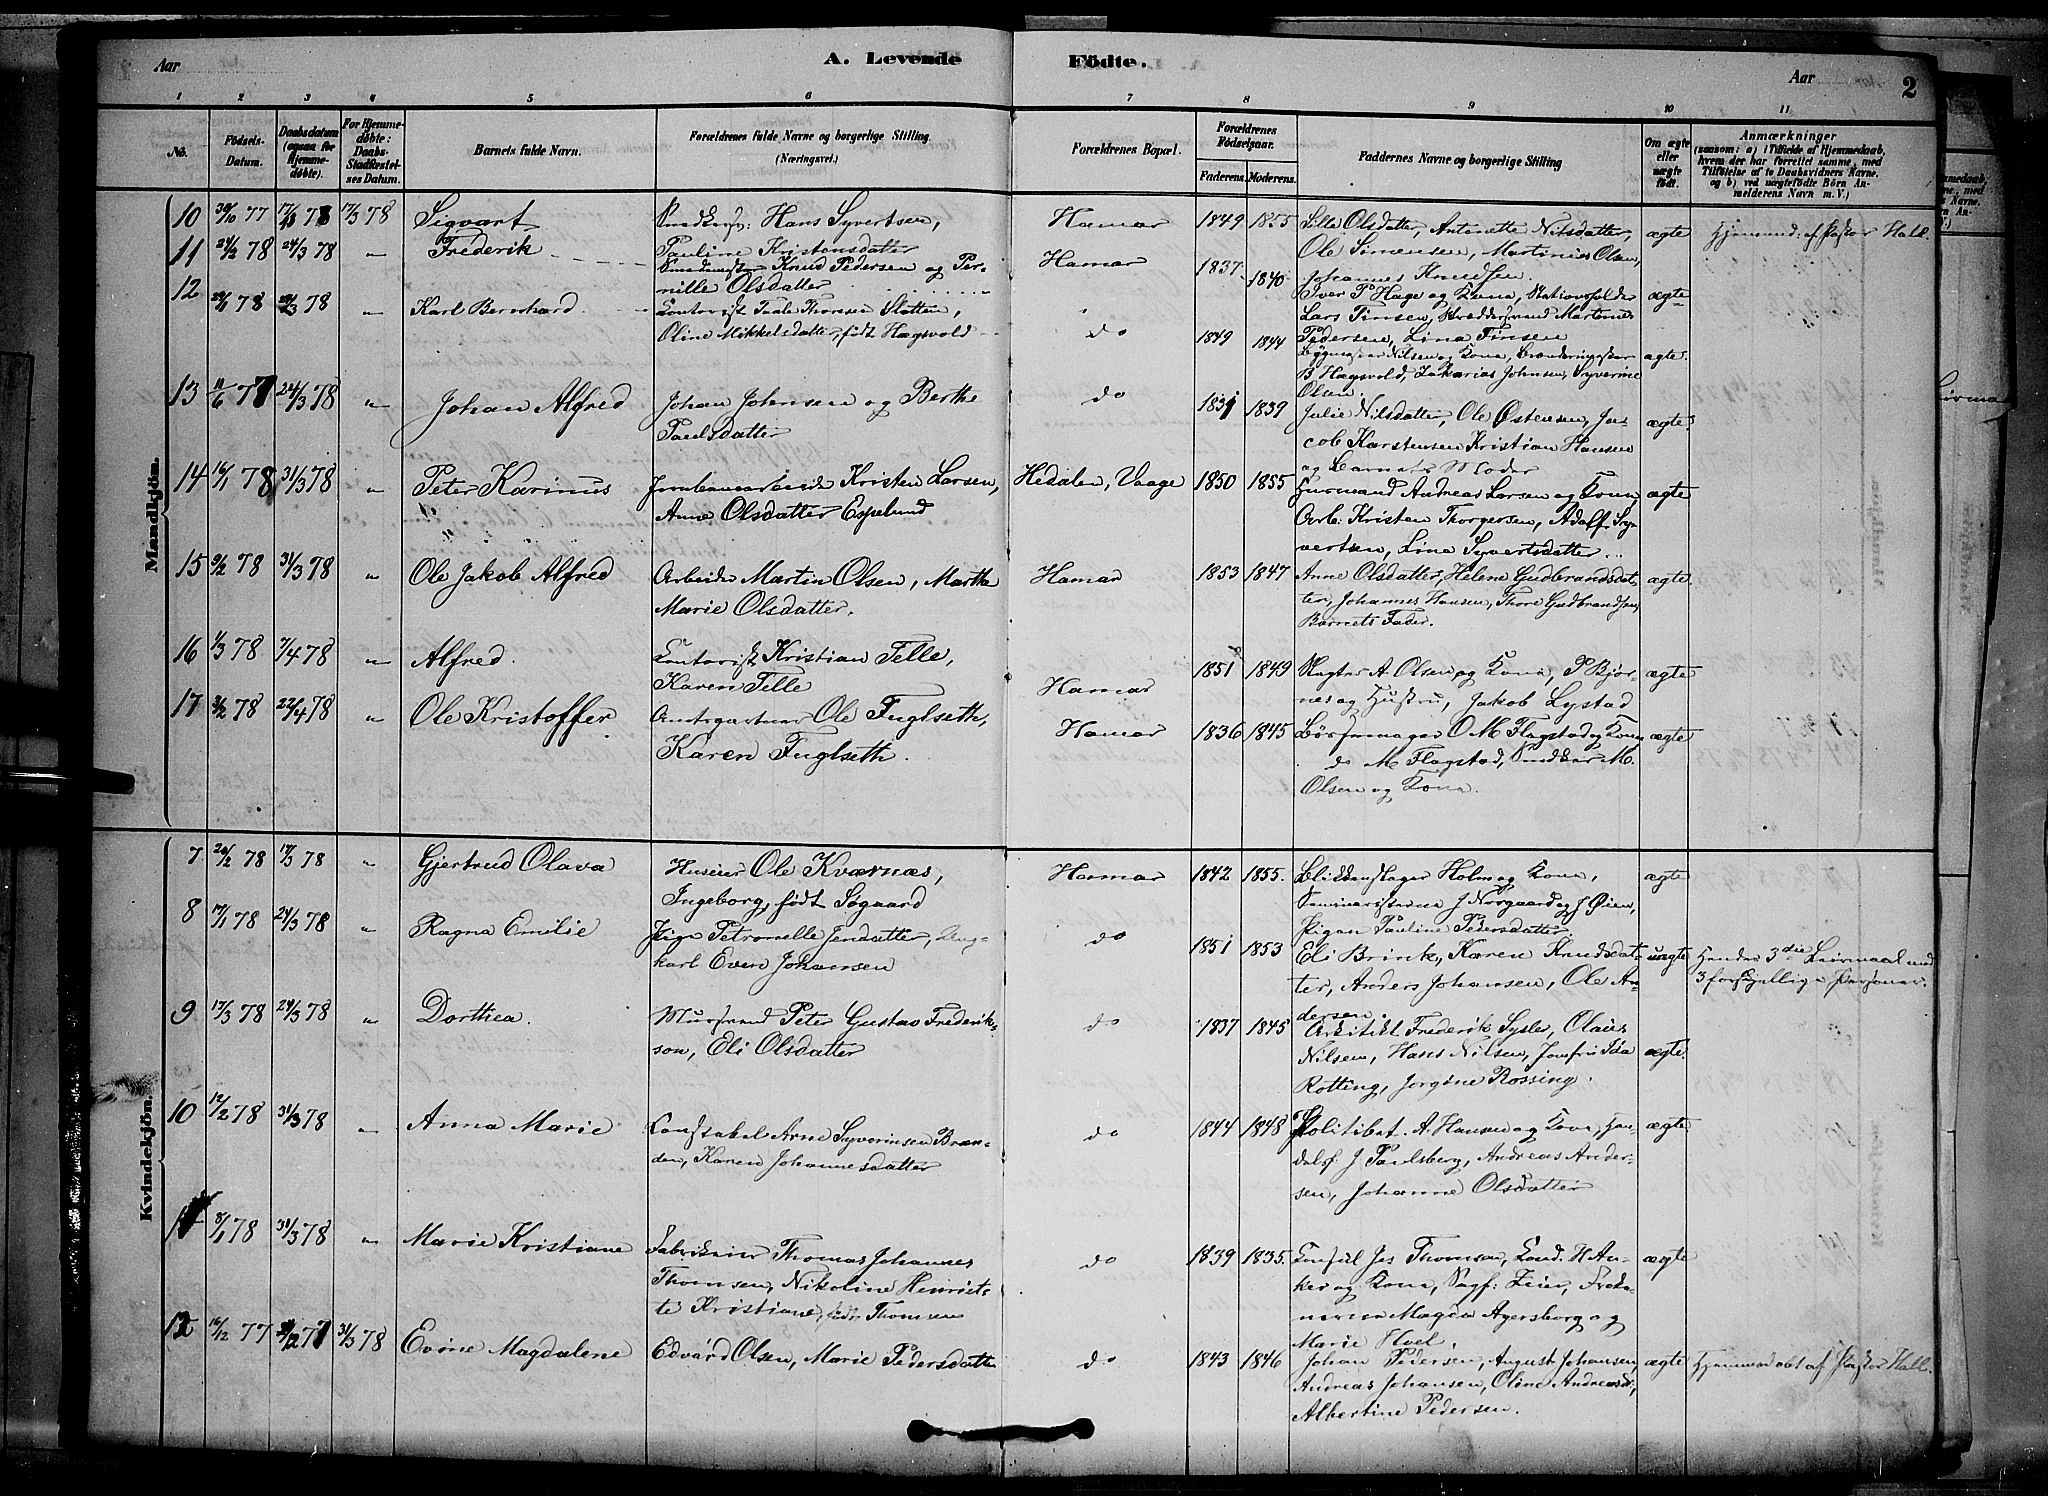 Aar
A. Levende Födte.
Aar
2
1 2 3 4 5 6 7 8 9 10 11
No.
Födsels-
Datum.
Daabsdatum
(ogsaa for
Hjemme-
döbte).
For Hjemme-
döbte:
Daabs-
Stadfæstel-
ses Datum.
Barnets fulde Navn.
Forældrenes fulde Navne og borgerlige Stilling.
(Næringsvei.)
Forældrenes Bopæl.
Forældrenes
Födselsaar.
Faderens. Moderens.
Faddernes Navne og borgerlige Stilling
Om ægte
eller
uægte
født.
Anmærkninger
(saasom: a) i Tilfælde af Hjemmedaab,
hvem der har forrettet samme, med
Tilföielse af to Daabsvidners Navne.
og b) ved uægtefödte Börn An-
melderens Navn m. V.)
Mandkjön.
10 30/10 77 17/3 78 17/3 78 Sigvart
Hans Syvertsen,
Pauline Kristensdatter
Hamar 1849 1855
Sille Olsdatter, Antonette Nilsdatter,
Ole Simensen, Martinius Olsen,
Johannes Knudsen.
ægte
Hjemmed: af Pastor Hall.
11 24/2 78 24/3 78 " Frederik
Knud Pedersen og Per-
nille Olsdatter
Hamar 1837 1840
Iver P Hage og Kona, Stationsholder
Lars Finsen, Martinus
Pedersen, Lina Finsen
ægte
12 78 78 " Karl Bernhard
Kontorist Paale Thoresen Slotten,
Oline Mikkelsdatter, født Hægsvold
do 1849 1844
Nilsen og Kona,
B Hægsvold, Zakarias Johnsen, Syverine
Olsen.
ægte.
13 11/6 77 24/3 78 " Johan Alfred
Johan Johnsen og Berthe
Paulsdatter
do 1831 1839
Julie Nilsdatter, Ole Østensen, Ja-
cob Karstensen Kristian Hansen
og Barnets Moder
ægte.
14 16/1 78 31/3 78 " Peter Karinus
Jernbanearbeider Kristen Larsen,
Anne Olsdatter Espelund
Hedalen, Vaage 1850 1855
Gurmand Andreas Larsen og Kona,
Arb: Kristen Thorgersen, Adolf Sy-
vertsen, Lina Syvertsdatter
ægte
15 9/2 78 31/3 78 " Ole Jakob Alfred
Arbeider Martin Olsen, Marthe
Marie Olsdatter.
Hamar 1853 1847
Anne Olsdatter, Helene Gudbrandsdat-
ter, Johannes Hansen, Thore Gudbrandsen,
Barnets Fader.
ægte.
16 1/3 78 7/4 78 " Alfred.
Kontorist Kristian Telle,
Karen Telle
Hamar 1851 1849
Slagter A Olsen og Kona, P Bjør-
nes og Hustru, Jakob Lystad
ægte
17 3/2 78 22/4 78 " Ole Kristoffer
Amtsgartner Ole Fuglseth,
Karen Fuglseth.
Hamar 1836 1845
Børsemager O. M. Flagstad og Kona
do M Flagstad, Snedker M.
Olsen og Kona.
ægte
Kvindekjön.
7 20/2 78 17/3 78 " Gjertrud Olava
Huseier Ole Kværnæs,
Ingeborg, født Søgaard
Hamar 1842 1855.
Blikkenslager Holm og Kona,
Seminaristerne J Norgaard og J Øien,
Pigen Pauline Pedersdatter.
ægte
8 17/1 78 24/3 78 " Ragna Emilie
Pige Petronelle Jensdatter, Ung-
karl Even Johansen
do 1851 1853
Eli Brink, Karen Knudsdat-
ter, Anders Johansen, Ole An-
dersen.
uægte
Hendes 3die Leiermaal med
3 forskjellige Personer.
9 17/3 78 24/3 78 " Dorthea.
Mursvend Peter Gustav Frederik-
son, Eli Olsdatter
do 1837 1845
Arkitekt Frederik Sysler, Olaus
Nilsen, Hans Nilsen, Jomfru Ida
Rotting, Jorgine Rossing.
ægte.
10 12/2 78 31/3 78 " Anna Marie
Constabel Arne Syverinsen Bræn-
den, Karen Johannesdatter
do 1844 1848
Politibet. A. Hansen og Kona, Han-
delsf. J Paulsberg, Andreas Ander-
sen, Johanne Olsdatter
ægte.
11 8/1 78 31/3 78 " Marie Kristiane
Fabrikeier Thomas Johannes
Thomsen, Nikoline Henriet-
te Kristiane, født Thomsen
do 1839 1835.
Konsul Jes Thomson, Kand. H An-
ker og Kona, Sagf: Zeier, Frøk-
nerne Magda Agersborg og
Marie Hoel.
ægte
12 16/12 77 77 31/3 78 Evine Magdalene
Edvard Olsen, Marie Pedersdatter
do 1843 1846
Johan Pedersen, August Johansen,
Andreas Johansen, Oline Andreasdr,
Albertine Pedersen.
ægte
Hjemmedøbt af Pastor Hall.